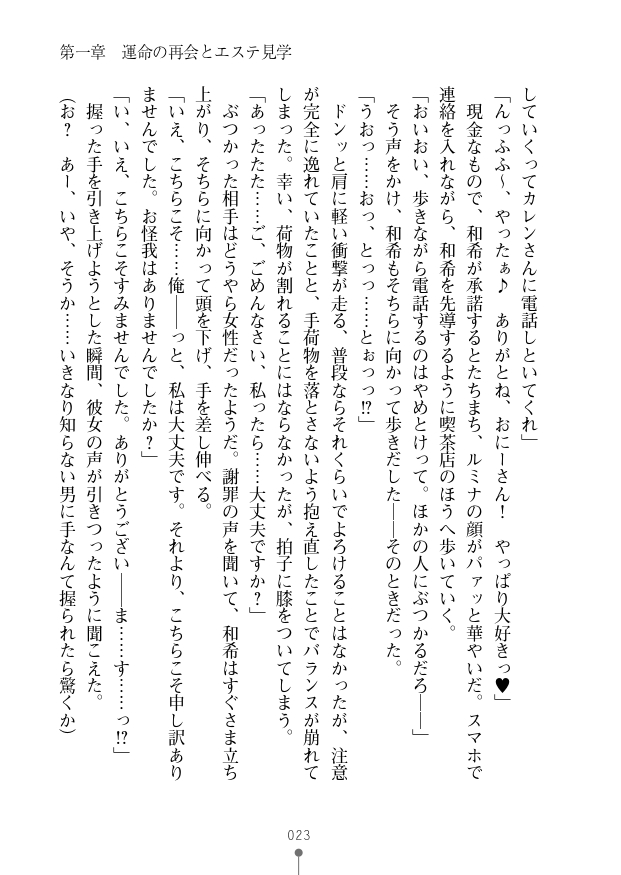 第一章　運命の再会とエステ見学
していくってカレンさんに電話しといてくれ」
「んっふふ～、やったぁ♪　ありがとね、おにーさん！　やっぱり大好きっ♥」
　現金なもので、和希が承諾するとたちまち、ルミナの顔がパァッと華やいだ。スマホで
連絡を入れながら、和希を先導するように喫茶店のほうへ歩いていく。
「おいおい、歩きながら電話するのはやめとけって。ほかの人にぶつかるだろ――」
　そう声をかけ、和希もそちらに向かって歩きだした――そのときだった。
「うおっ……おっ、とっっ……とぉっっ!?」
　ドンッと肩に軽い衝撃が走る、普段ならそれくらいでよろけることはなかったが、注意
が完全に逸れていたことと、手荷物を落とさないよう抱え直したことでバランスが崩れて
しまった。幸い、荷物が割れることにはならなかったが、拍子に膝をついてしまう。
「あったたた……ご、ごめんなさい、私ったら……大丈夫ですか？」
　ぶつかった相手はどうやら女性だったようだ。謝罪の声を聞いて、和希はすぐさま立ち
上がり、そちらに向かって頭を下げ、手を差し伸べる。
「いえ、こちらこそ……俺――っと、私は大丈夫です。それより、こちらこそ申し訳あり
ませんでした。お怪我はありませんでしたか？」
「い、いえ、こちらこそすみませんでした。ありがとうござい――ま……す……っ!?」
　握った手を引き上げようとした瞬間、彼女の声が引きつったように聞こえた。
（お？　あー、いや、そうか……いきなり知らない男に手なんて握られたら驚くか）
023